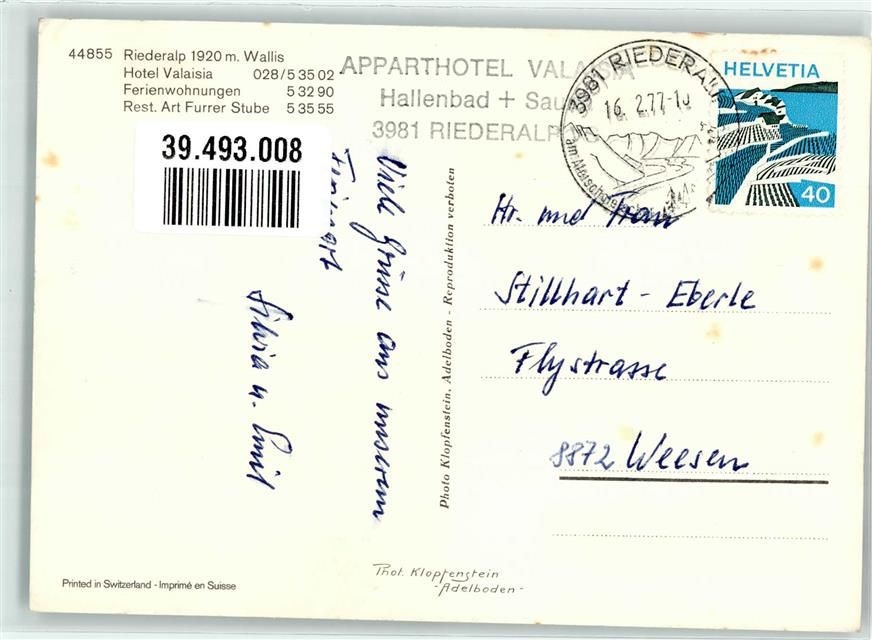 44855 Riederalp 1920 m. Wallis
Hotel Valaisia 028/5 35 02
Ferienwohnungen 5 32 90
Rest. Art Furrer Stube 5 35 55
39.493.008
APPARTHOTEL VALAISIA
Hallenbad + Sauna
3981 RIEDERALP
3981 RIEDERALP
16. 2.77-10
am Aletschgletscher
HELVETIA
40
Viele Grüsse aus unserem
Silvia u. Emil
Photo Klopfenstein, Adelboden - Reproduktion verboten
Hr. und Frau
Stillhart - Eberle
Flystrasse
8872 Weesen
Phot. Klopfenstein
- Adelboden -
Printed in Switzerland - Imprimé en Suisse